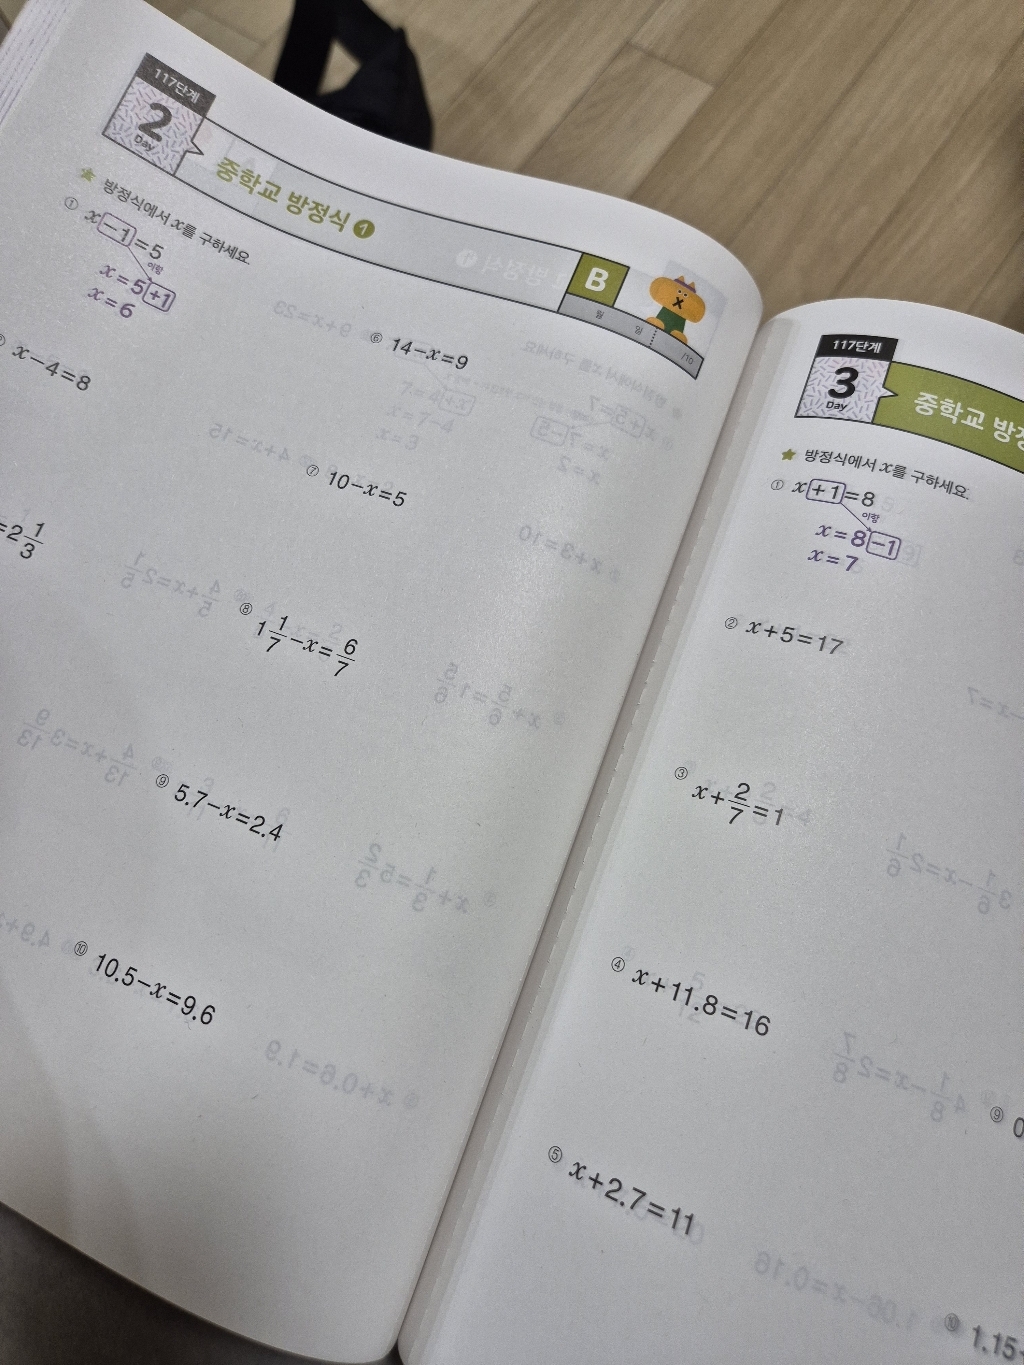 117단계
2
Day
중학교 방정식 1
B
월 일 /10
★ 방정식에서 x를 구하세요.
① x−1=5
이항
x=5+1
x=6
x−4=8
=2 1/3
⑥ 14−x=9
⑦ 10−x=5
⑧ 1 1/7−x=6/7
⑨ 5.7−x=2.4
⑩ 10.5−x=9.6
117단계
3
Day
중학교 방정
★ 방정식에서 x를 구하세요.
① x+1=8
이항
x=8−1
x=7
② x+5=17
③ x+2/7=1
④ x+11.8=16
⑤ x+2.7=11
⑨ 0
⑩ 1.15−